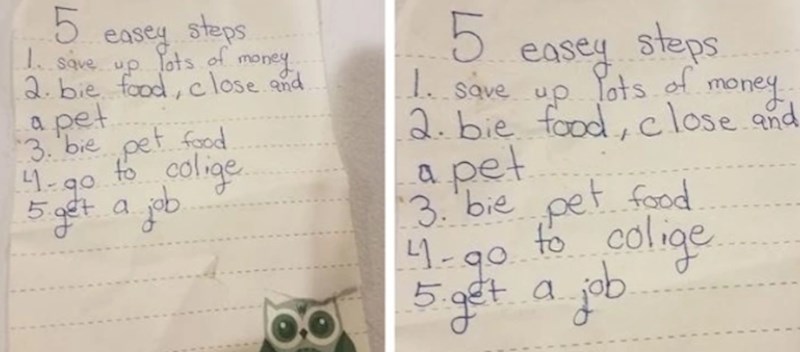 5 easey steps
1. save up lots of money
2. bie food, close and
a pet
3. bie pet food
4-go to colige
5.get a job
5 easey steps
1. save up lots of money
2. bie food, close and
a pet
3. bie pet food
4-go to colige
5.get a job